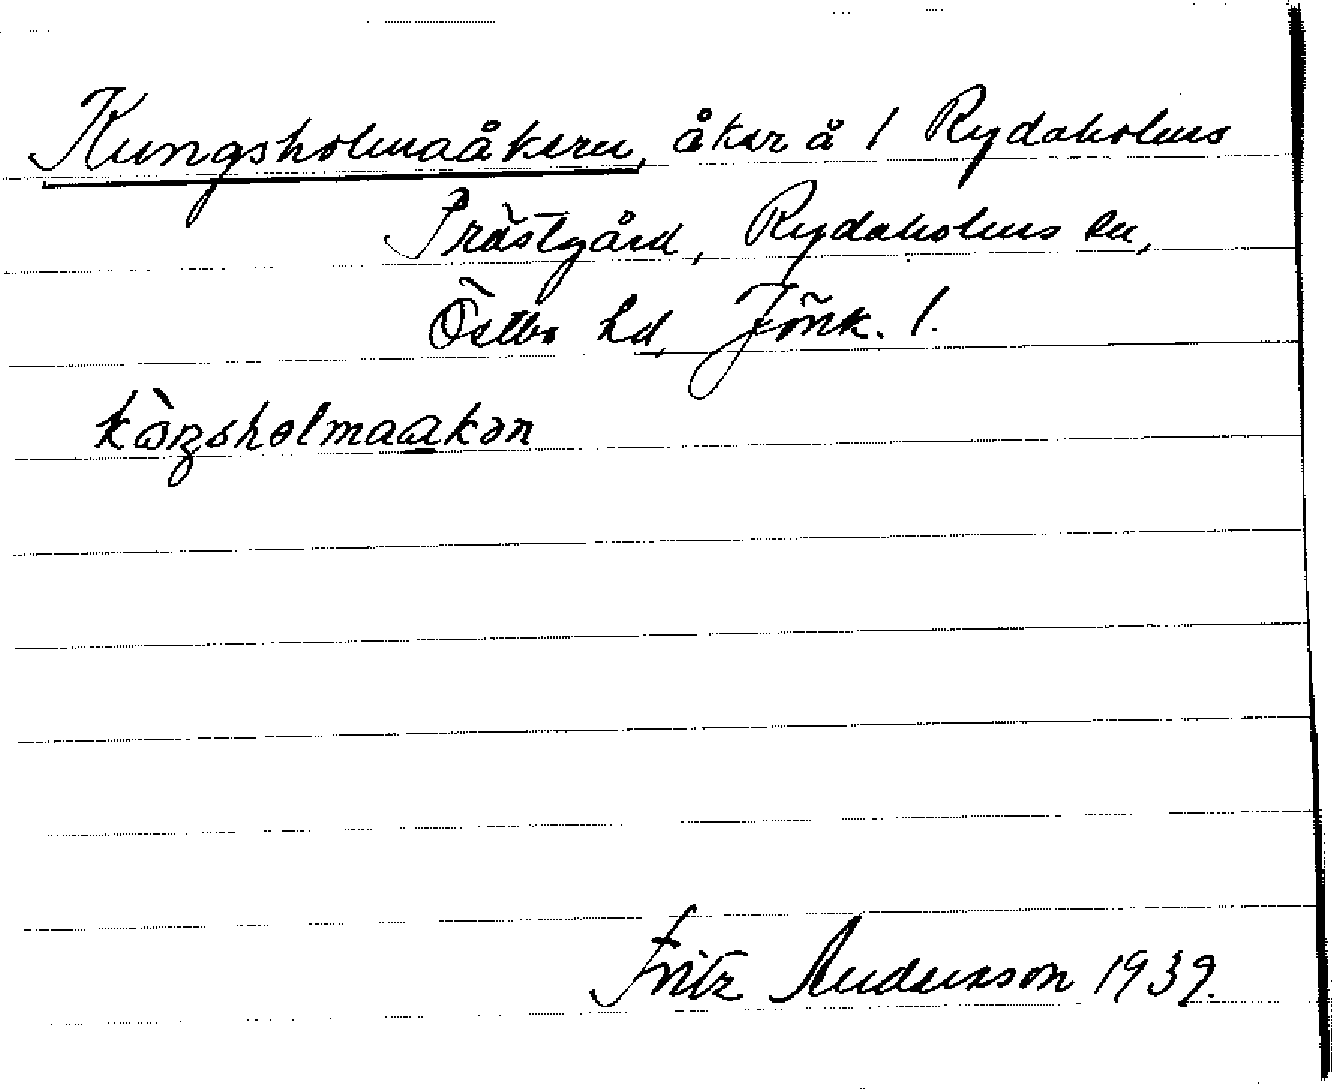 Kungsholmaåkern, åker å 1 Rydaholms
Prästgård, Rydaholms sn,
Östbo hd, Jönk. l.
kòŋsholmaakən
Fritz Andersson 1939.